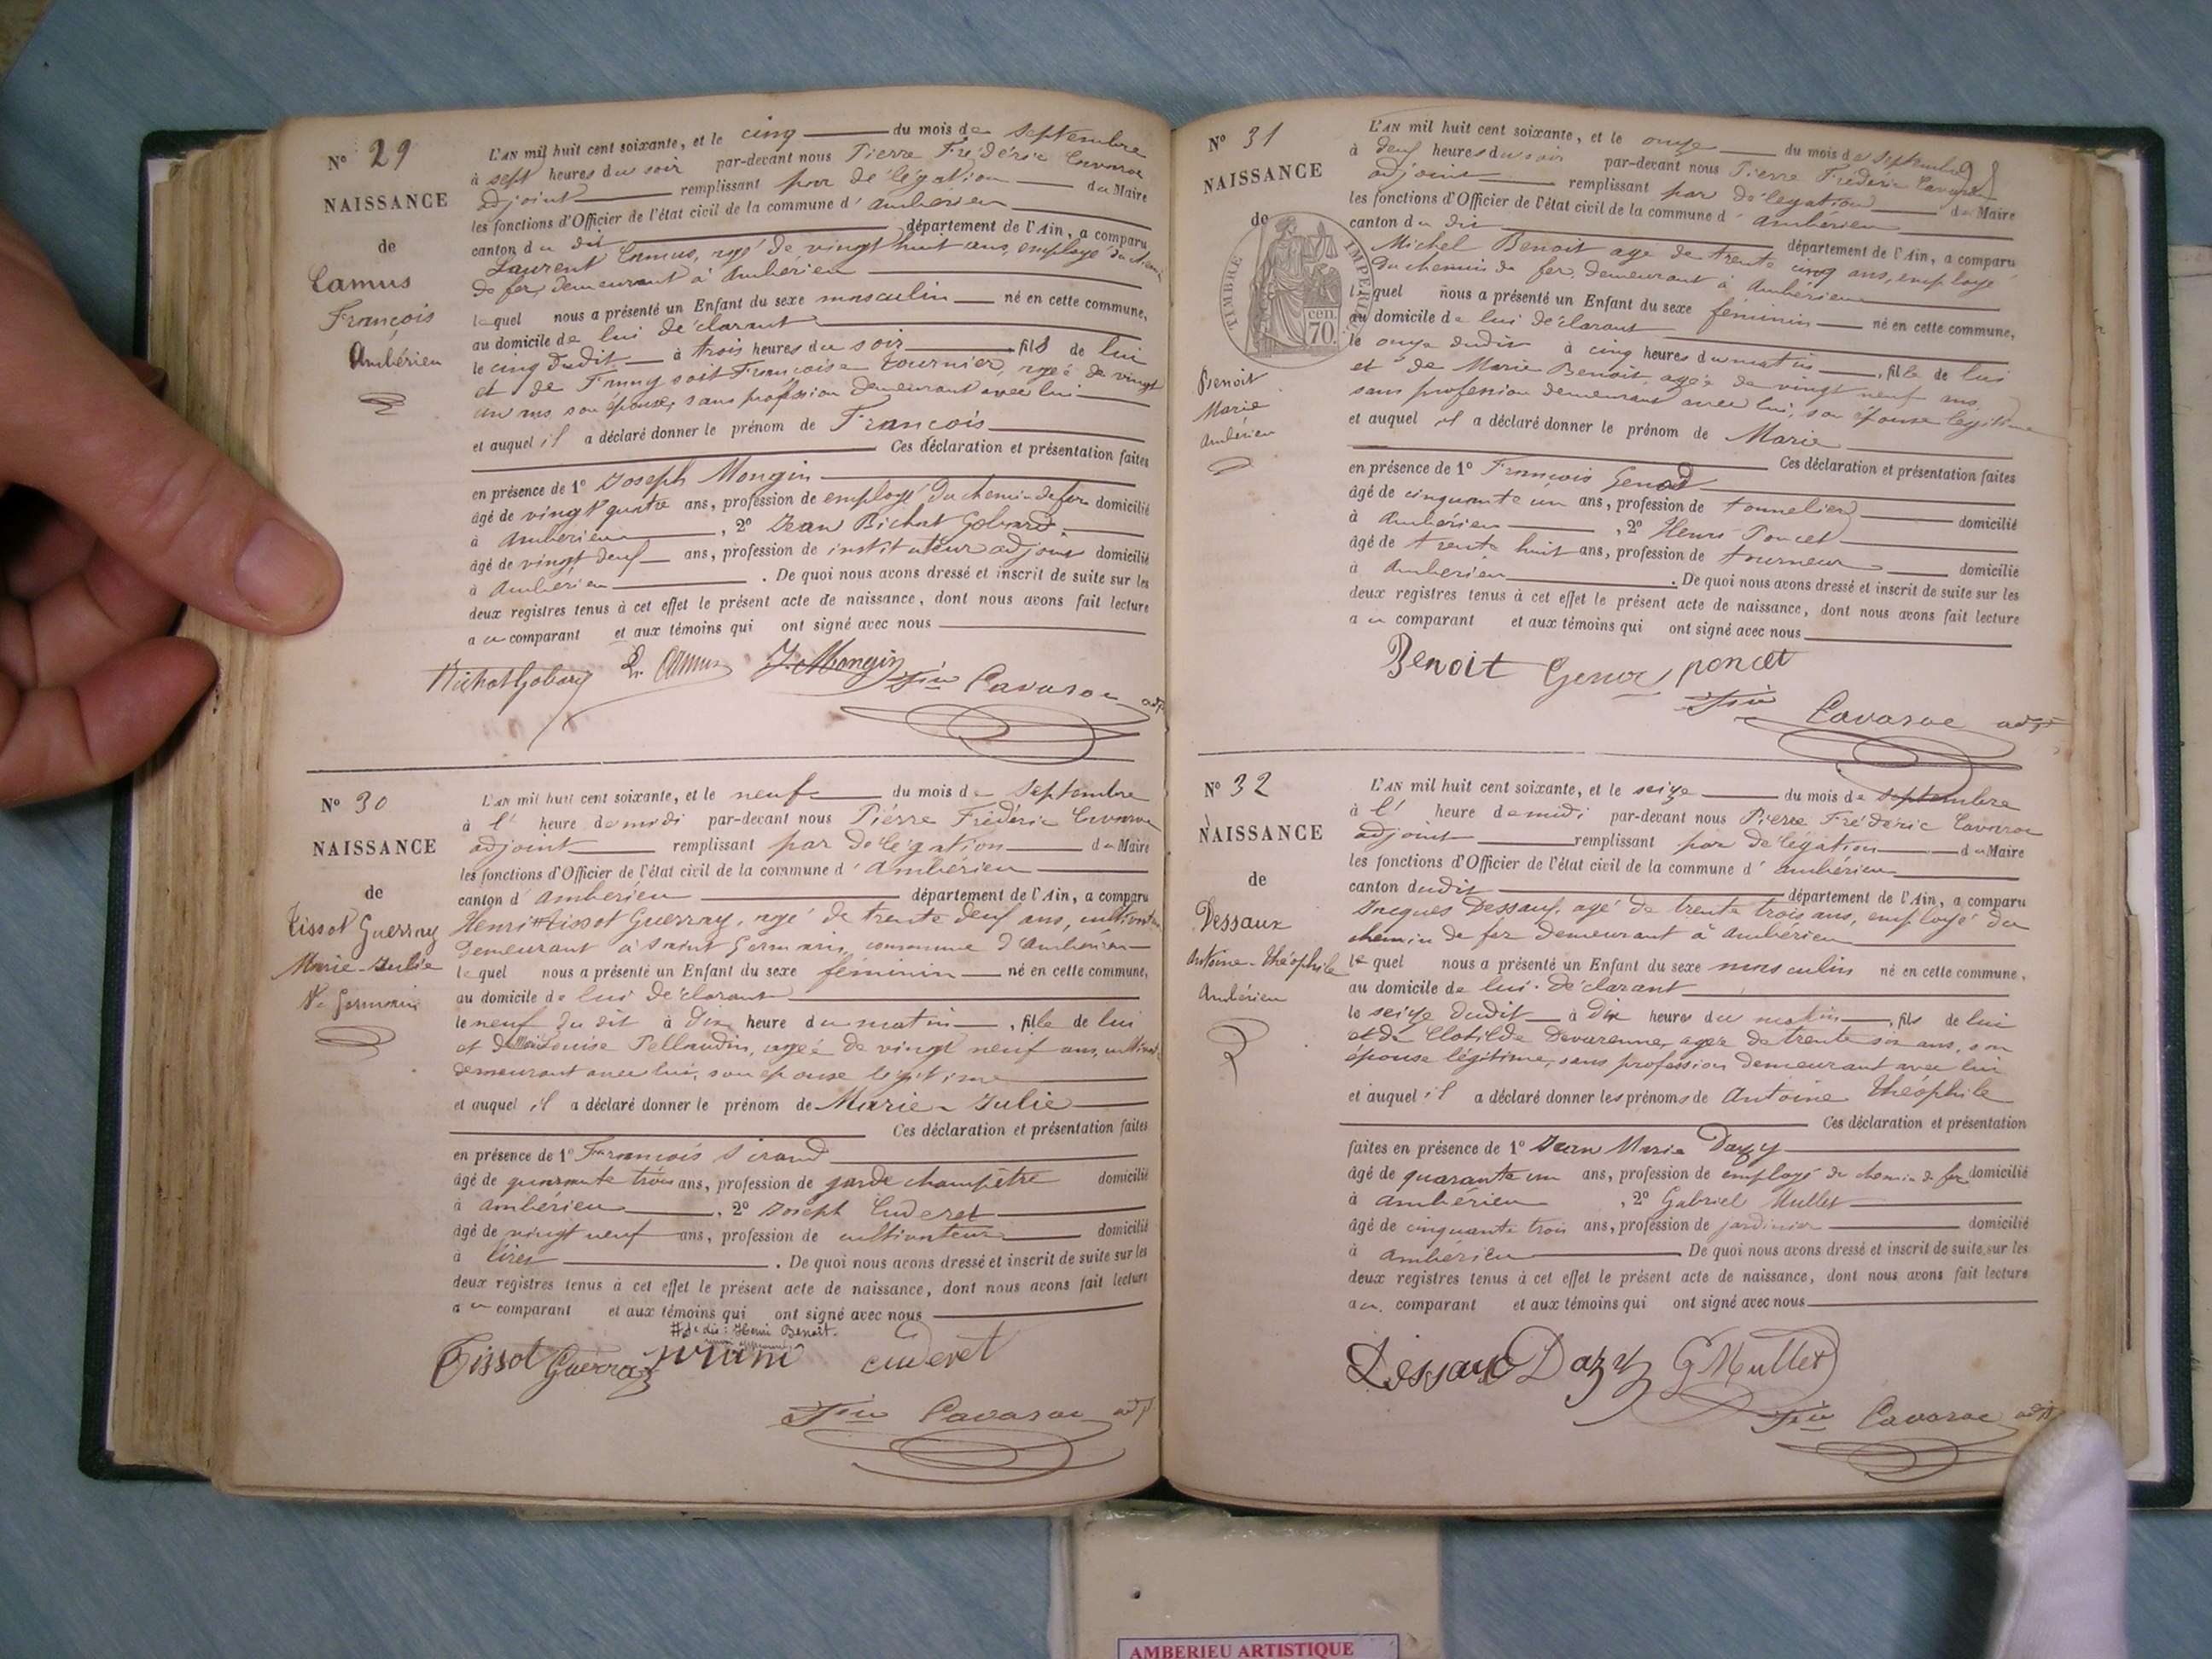 N° 29
NAISSANCE
de
Camus
François
Ambérieu
L'AN mil huit cent soixante, et le cinq du mois de Septembre
à sept heures du soir par-devant nous Pierre Frédéric Cavaroc
adjoint remplissant par délégation du Maire
les fonctions d'Officier de l'état civil de la commune d'Ambérieu
canton du dit département de l'Ain, a comparu
Laurent Camus, agé de vingt huit ans, employé du chemin
de fer, demeurant à Ambérieu
lequel nous a présenté un Enfant du sexe masculin né en cette commune,
au domicile de lui déclarant
le cinq dudit à trois heures du soir fils de lui
et de Fanny soit Françoise Tournier, agée de vingt
un ans, son épouse, sans profession demeurant avec lui
et auquel il a déclaré donner le prénom de François
Ces déclaration et présentation faites
en présence de 1° Joseph Mongin
âgé de vingt quatre ans, profession de employé du chemin de fer domicilié
à Ambérieu, 2° Jean Bichat Gobard
âgé de vingt deux ans, profession de instituteur adjoint domicilié
à Ambérieu. De quoi nous avons dressé et inscrit de suite sur les
deux registres tenus à cet effet le présent acte de naissance, dont nous avons fait lecture
au comparant et aux témoins qui ont signé avec nous
Bichat Gobard L. Camus J. Mongin
Fric Cavaroc adjt
N° 30
NAISSANCE
de
Tissot Guerraz
Marie-Julie
St Germain
L'AN mil huit cent soixante, et le neuf du mois de Septembre
à l' heure de midi par-devant nous Pierre Frédéric Cavaroc
adjoint remplissant par délégation du Maire
les fonctions d'Officier de l'état civil de la commune d'Ambérieu
canton d'Ambérieu département de l'Ain, a comparu
Henri # Tissot Guerraz, agé de trente deux ans, cultivateur
demeurant à Saint Germain, commune d'Ambérieu
lequel nous a présenté un Enfant du sexe féminin né en cette commune,
au domicile de lui déclarant
le neuf du dit à dix heure du matin, fille de lui
et de Louise Pellaudin, agée de vingt neuf ans,
demeurant avec lui, son épouse légitime
et auquel il a déclaré donner le prénom de Marie-Julie
Ces déclaration et présentation faites
en présence de 1° François Sirand
âgé de quarante trois ans, profession de garde champêtre domicilié
à Ambérieu, 2° Joseph Cuderet
âgé de vingt neuf ans, profession de cultivateur domicilié
à . De quoi nous avons dressé et inscrit de suite sur les
deux registres tenus à cet effet le présent acte de naissance, dont nous avons fait lecture
au comparant et aux témoins qui ont signé avec nous
# dit: Henri Benoit.
Tissot Guerraz Sirand cuderet
Fric Cavaroc adjt
N° 31
NAISSANCE
de
TIMBRE IMPERIAL
70 cen.
Benoit
Marie
Ambérieu
L'AN mil huit cent soixante, et le onze du mois de Septembre
à deux heures du soir par-devant nous Pierre Frédéric Cavaroc
adjoint remplissant par délégation du Maire
les fonctions d'Officier de l'état civil de la commune d'Ambérieu
canton du dit département de l'Ain, a comparu
Michel Benoit agé de trente cinq ans, employé
du chemin de fer, demeurant à Ambérieu
lequel nous a présenté un Enfant du sexe féminin né en cette commune,
au domicile de lui déclarant
le onze dudit à cinq heures du matin, fille de lui
et de Marie Benoit, agée de vingt neuf ans,
sans profession demeurant avec lui, son épouse légitime
et auquel il a déclaré donner le prénom de Marie
Ces déclaration et présentation faites
en présence de 1° François Genod
âgé de cinquante un ans, profession de tonnelier domicilié
à Ambérieu, 2° Henri Poncet
âgé de trente huit ans, profession de tourneur domicilié
à Ambérieu. De quoi nous avons dressé et inscrit de suite sur les
deux registres tenus à cet effet le présent acte de naissance, dont nous avons fait lecture
au comparant et aux témoins qui ont signé avec nous
Benoit Genod poncet
Fric Cavaroc adjt
N° 32
NAISSANCE
de
Dessaux
Antoine-Théophile
Ambérieu
L'AN mil huit cent soixante, et le seize du mois de Septembre
à l' heure de midi par-devant nous Pierre Frédéric Cavaroc
adjoint remplissant par délégation du Maire
les fonctions d'Officier de l'état civil de la commune d'Ambérieu
canton dudit département de l'Ain, a comparu
Jacques Dessaux, agé de trente trois ans, employé du
chemin de fer demeurant à Ambérieu
lequel nous a présenté un Enfant du sexe masculin né en cette commune,
au domicile de lui déclarant
le seize dudit à dix heures du matin, fils de lui
et de Clotilde Devarenne, agée de trente six ans, son
épouse légitime, sans profession demeurant avec lui
et auquel il a déclaré donner les prénoms de Antoine Théophile
Ces déclaration et présentation
faites en présence de 1° Jean Marie Dazy
âgé de quarante un ans, profession de employé du chemin de fer domicilié
à Ambérieu, 2° Gabriel Mullet
âgé de cinquante trois ans, profession de jardinier domicilié
à Ambérieu De quoi nous avons dressé et inscrit de suite sur les
deux registres tenus à cet effet le présent acte de naissance, dont nous avons fait lecture
au comparant et aux témoins qui ont signé avec nous
Dessaux Dazy G Mullet
Fric Cavaroc adjt
AMBERIEU ARTISTIQUE